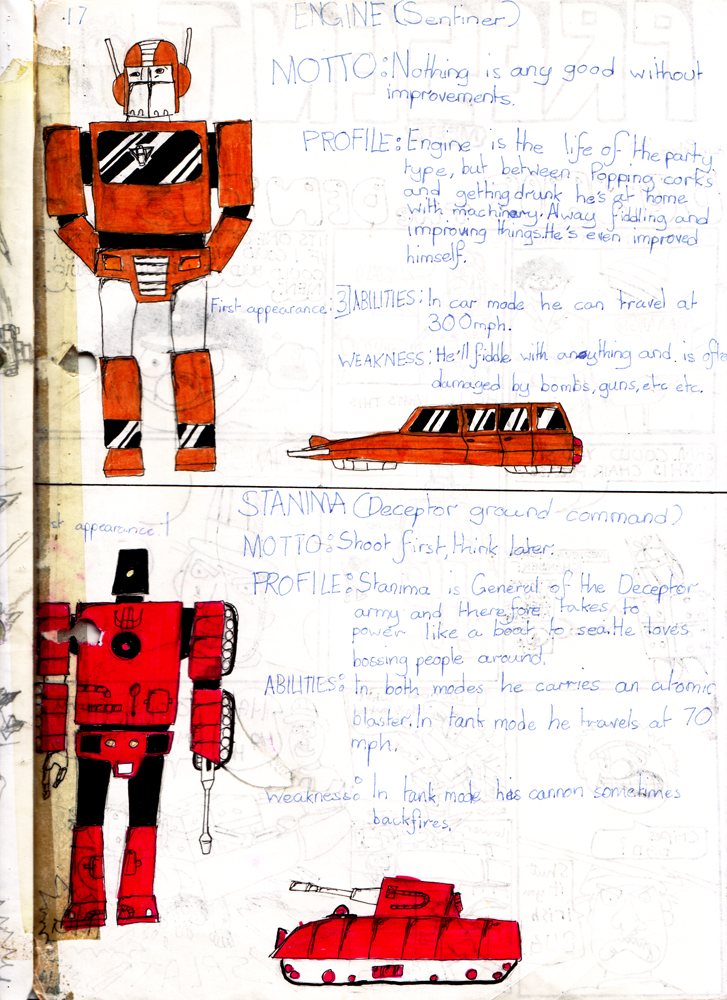 17
ENGINE (Sentiner)
MOTTO: Nothing is any good without
improvements.
PROFILE: Engine is the life of the party
type, but between Popping corks
and getting drunk he's at home
with machinery. Alway fiddling and
improving things. He's even improved
himself.
First appearance: 3
ABILITIES: In car mode he can travel at
300mph.
WEAKNESS: He'll fiddle with anything and is ofte
damaged by bombs, guns, etc etc.
STANIMA (Deceptor ground command)
st appearance: 1
MOTTO: Shoot first, think later.
PROFILE: Stanima is General of the Deceptor
army and therefore takes to
power like a boat to sea. He loves
bossing people around.
ABILITIES: In both modes he carries an atomic
blaster. In tank mode he travels at 70
mph.
Weakness: In tank mode his cannon sometimes
backfires.